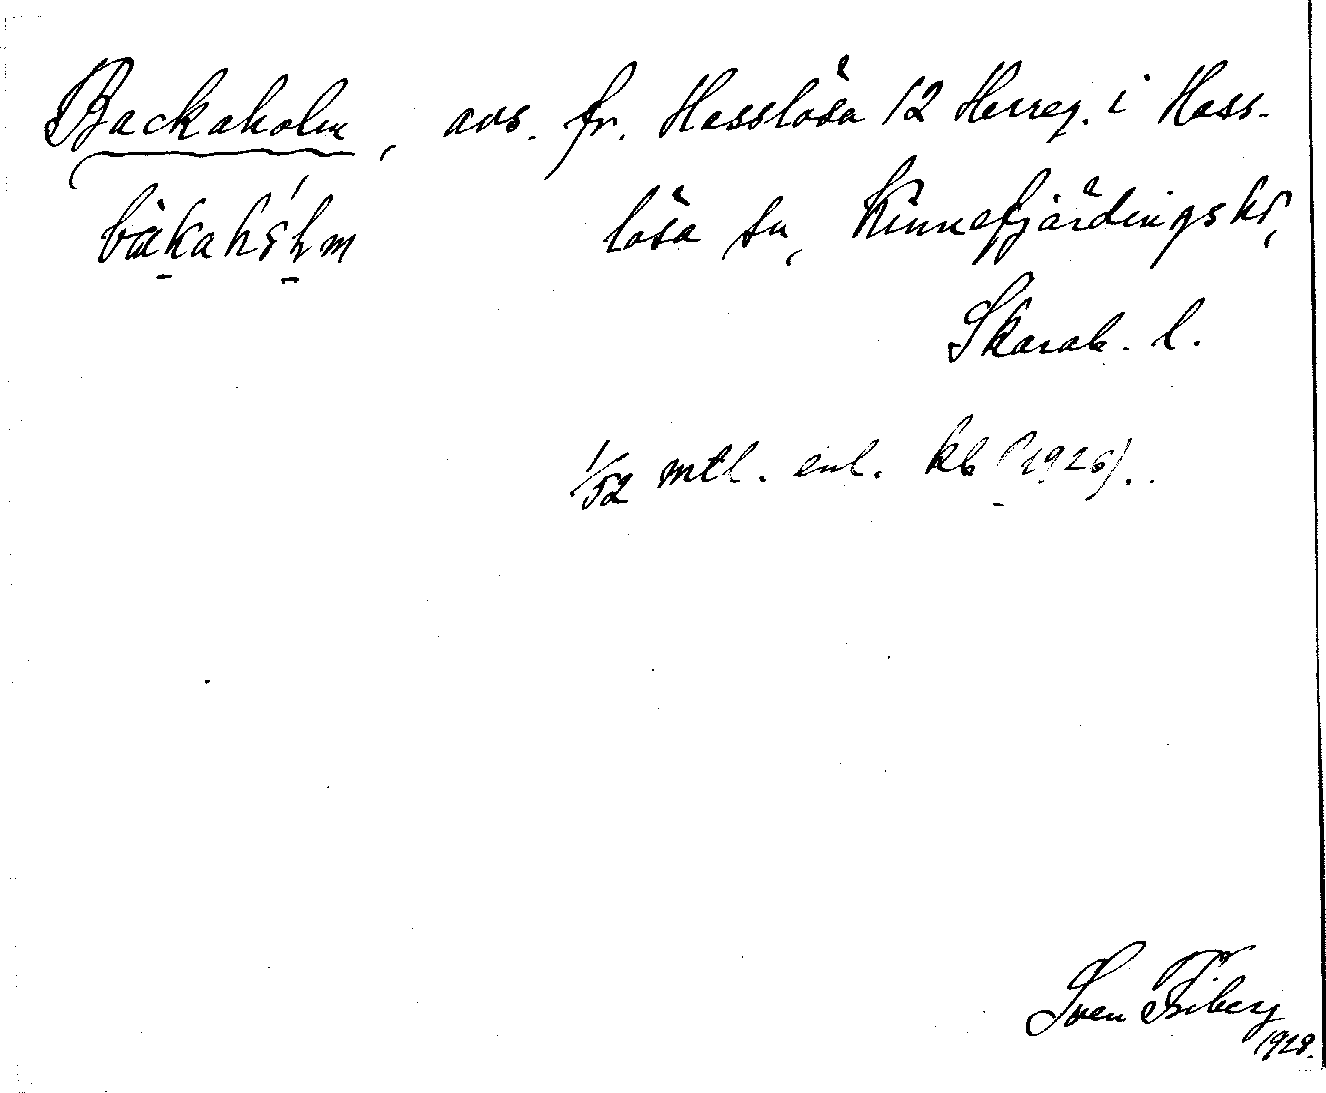 Backaholm, avs. fr. Hasslösa 12 Herreg. i Hass-
lösa sn, Kinnefjärdings hd,
Skarab. l.
1/52 mtl. enl. kb (1926).
Sven Friberg
1928.